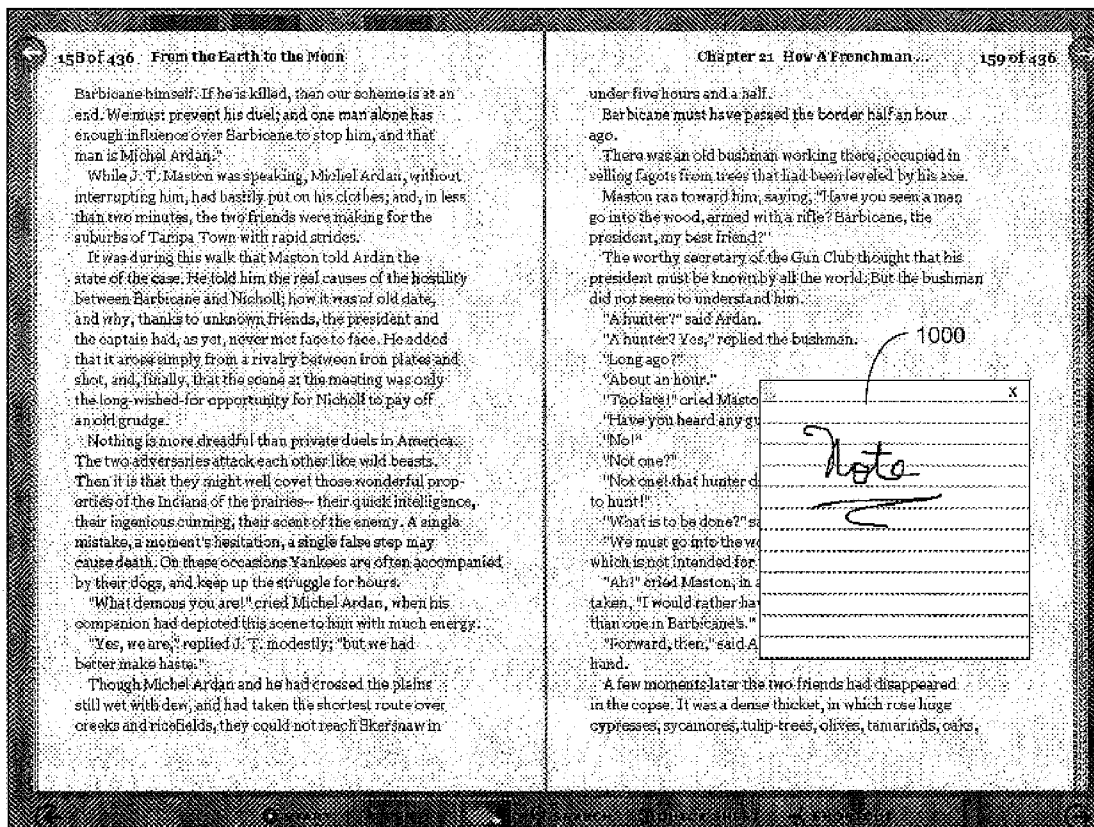 158 of 436 From the Earth to the Moon
Barbicane himself. If he is killed, then our scheme is at an
end. We must prevent his duel; and one man alone has
enough influence over Barbicane to stop him, and that
man is Michel Ardan."
While J. T. Maston was speaking, Michel Ardan, without
interrupting him, had hastily put on his clothes; and, in less
than two minutes, the two friends were making for the
suburbs of Tampa Town with rapid strides.
It was during this walk that Maston told Ardan the
state of the case. He told him the real causes of the hostility
between Barbicane and Nicholl; how it was of old date,
and why, thanks to unknown friends, the president and
the captain had, as yet, never met face to face. He added
that it arose simply from a rivalry between iron plates and
shot, and, finally, that the scene at the meeting was only
the long-wished-for opportunity for Nicholl to pay off
an old grudge.
Nothing is more dreadful than private duels in America.
The two adversaries attack each other like wild beasts.
Then it is that they might well covet those wonderful prop-
erties of the Indians of the prairies-- their quick intelligence,
their ingenious cunning, their scent of the enemy. A single
mistake, a moment's hesitation, a single false step may
cause death. On these occasions Yankees are often accompanied
by their dogs, and keep up the struggle for hours.
"What demons you are!" cried Michel Ardan, when his
companion had depicted this scene to him with much energy.
"Yes, we are," replied J. T. modestly; "but we had
better make haste."
Though Michel Ardan and he had crossed the plains
still wet with dew, and had taken the shortest route over
creeks and ricefields, they could not reach Skersnaw in
Chapter 21 How A Frenchman ... 159 of 436
under five hours and a half.
Barbicane must have passed the border half an hour
ago.
There was an old bushman working there, occupied in
selling fagots from trees that had been leveled by his axe.
Maston ran toward him, saying, "Have you seen a man
go into the wood, armed with a rifle? Barbicane, the
president, my best friend?"
The worthy secretary of the Gun Club thought that his
president must be known by all the world. But the bushman
did not seem to understand him.
"A hunter?" said Ardan.
"A hunter? Yes," replied the bushman.
"Long ago?"
"About an hour."
"Too late!" cried Masto
"Have you heard any gu
"No!"
"Not one?"
"Not one! that hunter d
to hunt!"
"What is to be done?" sa
"We must go into the wo
which is not intended for
"Ah!" cried Maston, in a
taken, "I would rather hav
than one in Barbicane's."
"Forward, then," said A
hand.
A few moments later the two friends had disappeared
in the copse. It was a dense thicket, in which rose huge
cypresses, sycamores, tulip-trees, olives, tamarinds, oaks,
1000
x
Note